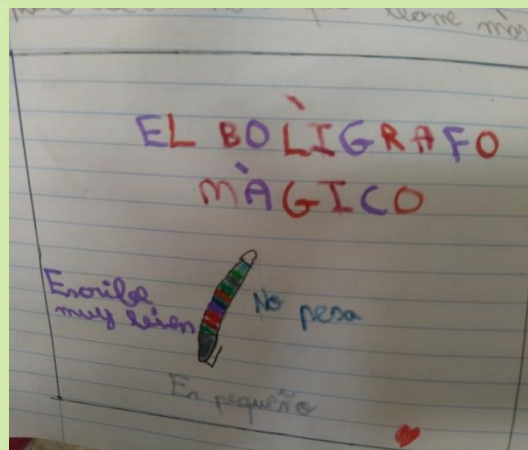 EL BOLÌGRAFO
MÀGICO
Escribe
muy bien
No pesa
Es pequeño